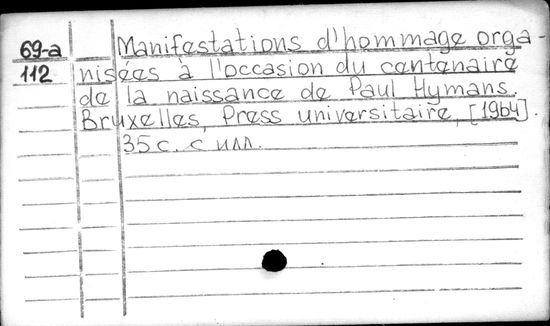 69-a Manifestations d'hommage orga-
112 nisées à l'occasion du centenaire
de la naissance de Paul Hymans.
Bruxelles, Press universitaire, [1964].
35 с. с илл.